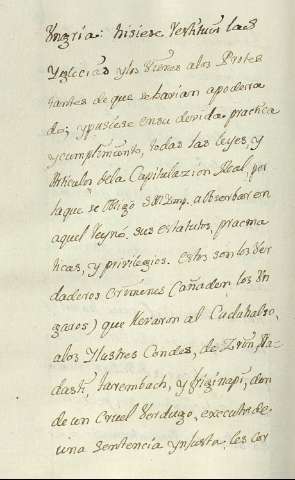 Ungria: hisiese restituir las
Yglecias y los vienes a los Protes
tantes de que se havian apodera
do; y pusiese en su devida practica
y cumplimiento, todas las leyes, y
Articulos de la Capitulazion Real, por
la que se obligó S. M. Ymp. a observar en
aquel Reyno sus estatutos, pracma
ticas, y privilegios. estos son los ver
daderos crimenes (añaden los Un
garos) que llevaron al Cadahalso,
a los Ylustres Condes, de Zrin, Na
dasti, Tarembach, y
de un Cruel Verdugo, executó de
una sentencia ynjusta, les cor